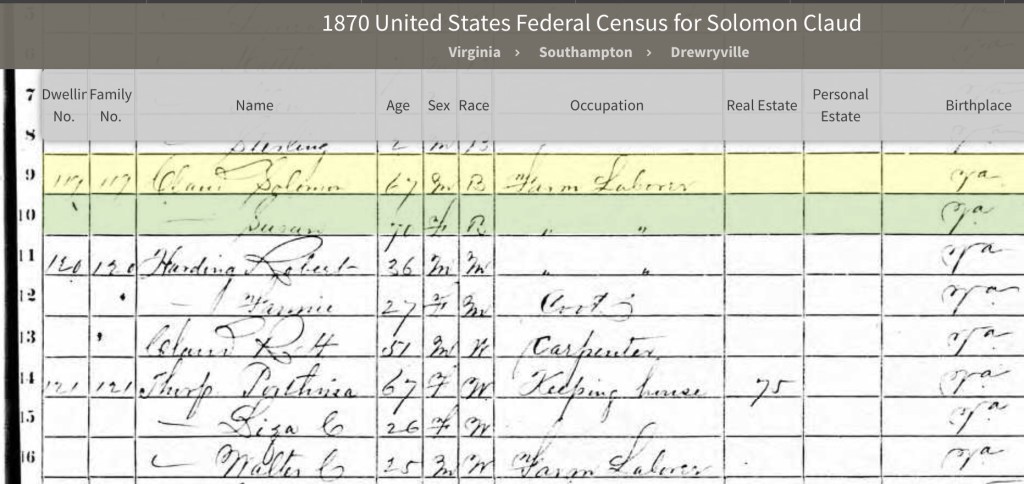 1870 United States Federal Census for Solomon Claud
Virginia › Southampton › Drewryville
Dwellin No. Family No. Name Age Sex Race Occupation Real Estate Personal Estate Birthplace
7
8 Sterling 2 M B
9 119 119 Claud Solomon 67 M B Farm Laborer Va
10 — Susan 71 F B " " Va
11 120 120 Harding Robert 36 M M " " Va
12 — Fannie 27 F M Va
13 R H 51 M W Carpenter Va
14 121 121 Thorp Perthnia 67 F W Keeping house 75 Va
15 — Liza C 26 F W Va
16 — Walter C 25 M W Farm Laborer Va